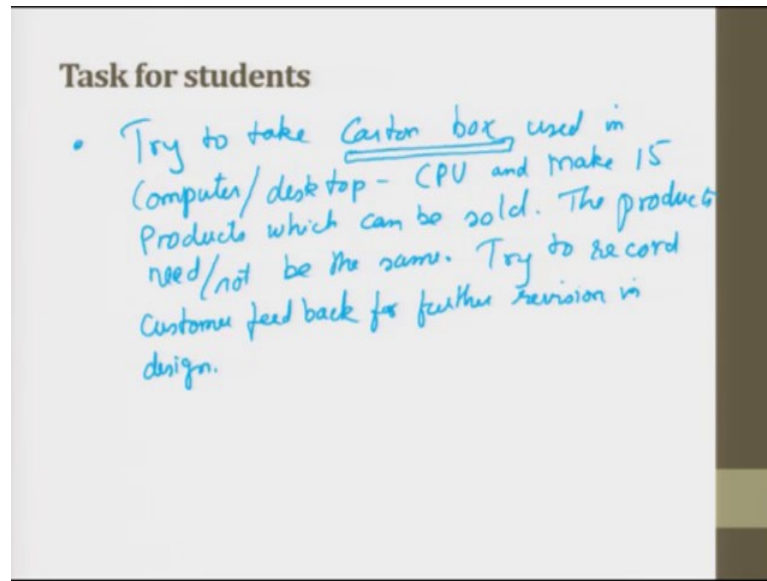 Task for students
• Try to take Carton box used in
Computer/desktop - CPU and make 15
Products which can be sold. The products
need/not be the same. Try to record
Customer feedback for further revision in
design.